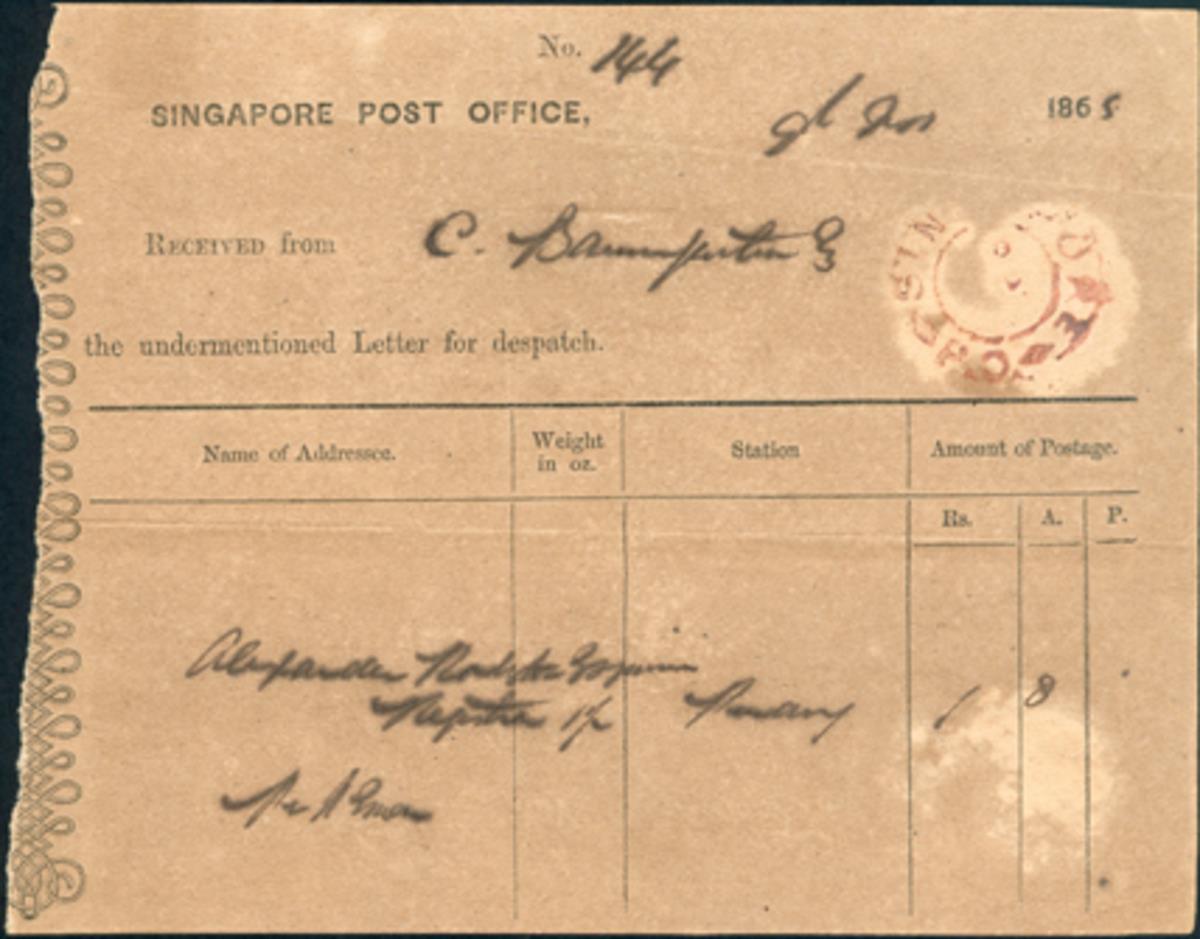 No. 144
SINGAPORE POST OFFICE, 9th Nov 1865
RECEIVED from C. Baumgarten Esq
the undermentioned Letter for despatch.
Name of Addressee. Weight in oz. Station Amount of Postage.
Rs. A. P.
Alexander Esquire
Registrar Penang 1 8